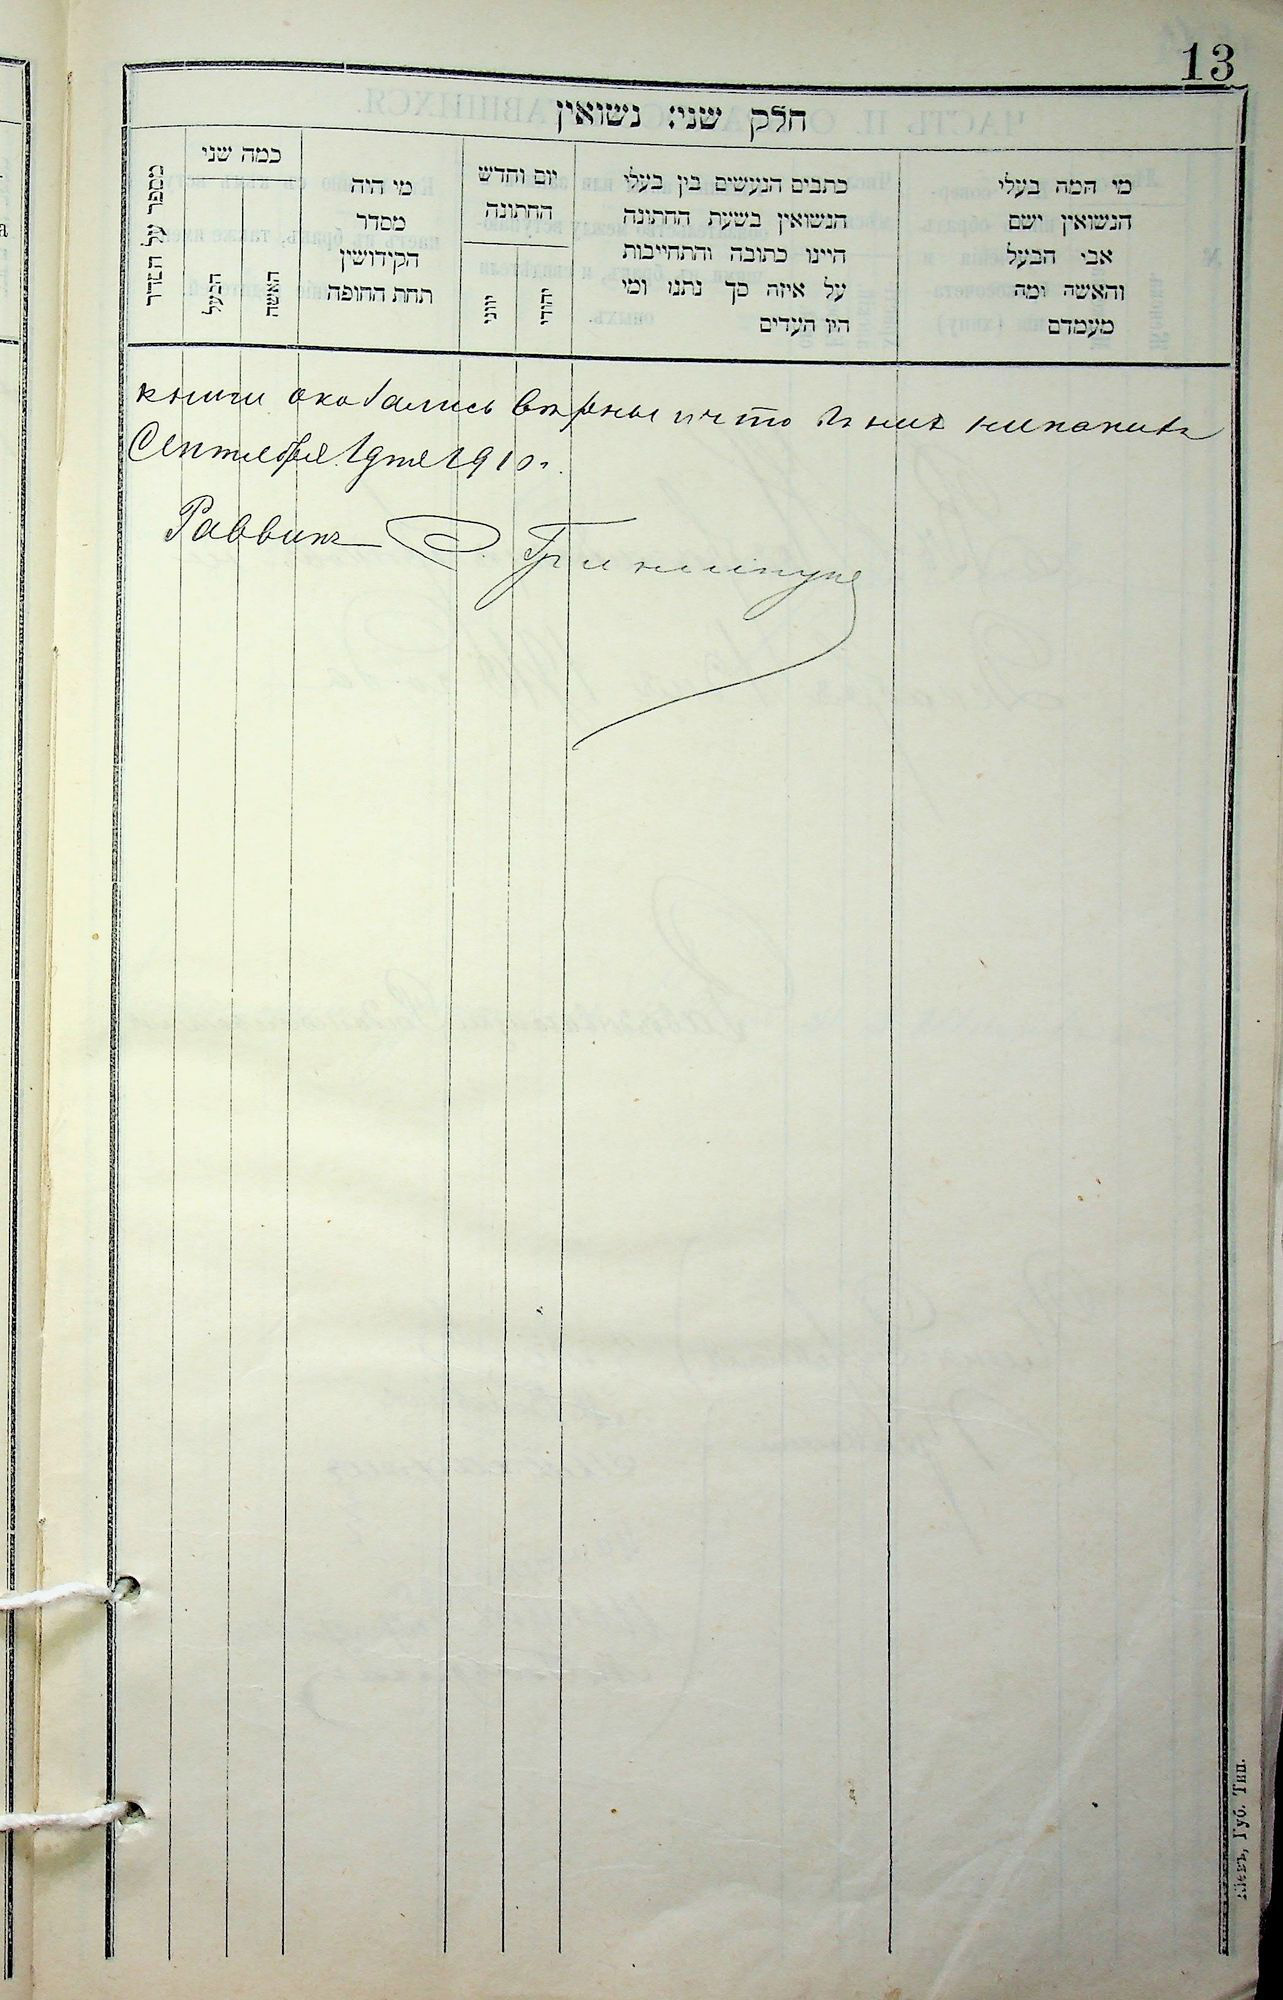 13
חלק שני: נשואין
מספר על הסדר
כמה שני
הבעל
האשה
מי היה
מסדר
הקידושין
תחת החופה
יום וחדש
החתונה
יווני
יהודי
כתבים הנעשים בין בעלי
הנשואין בשעת החתונה
היינו כתובה והתחייבות
על איזה סך נתנו ומי
היו העדים
מי המה בעלי
הנשואין ושם
אבי הבעל
והאשה ומה
מעמדם
книги оказались верны и что въ них никакихъ
Сентября 1 дня 1910 г.
Раввинъ
Кіевъ, Губ. Тип.